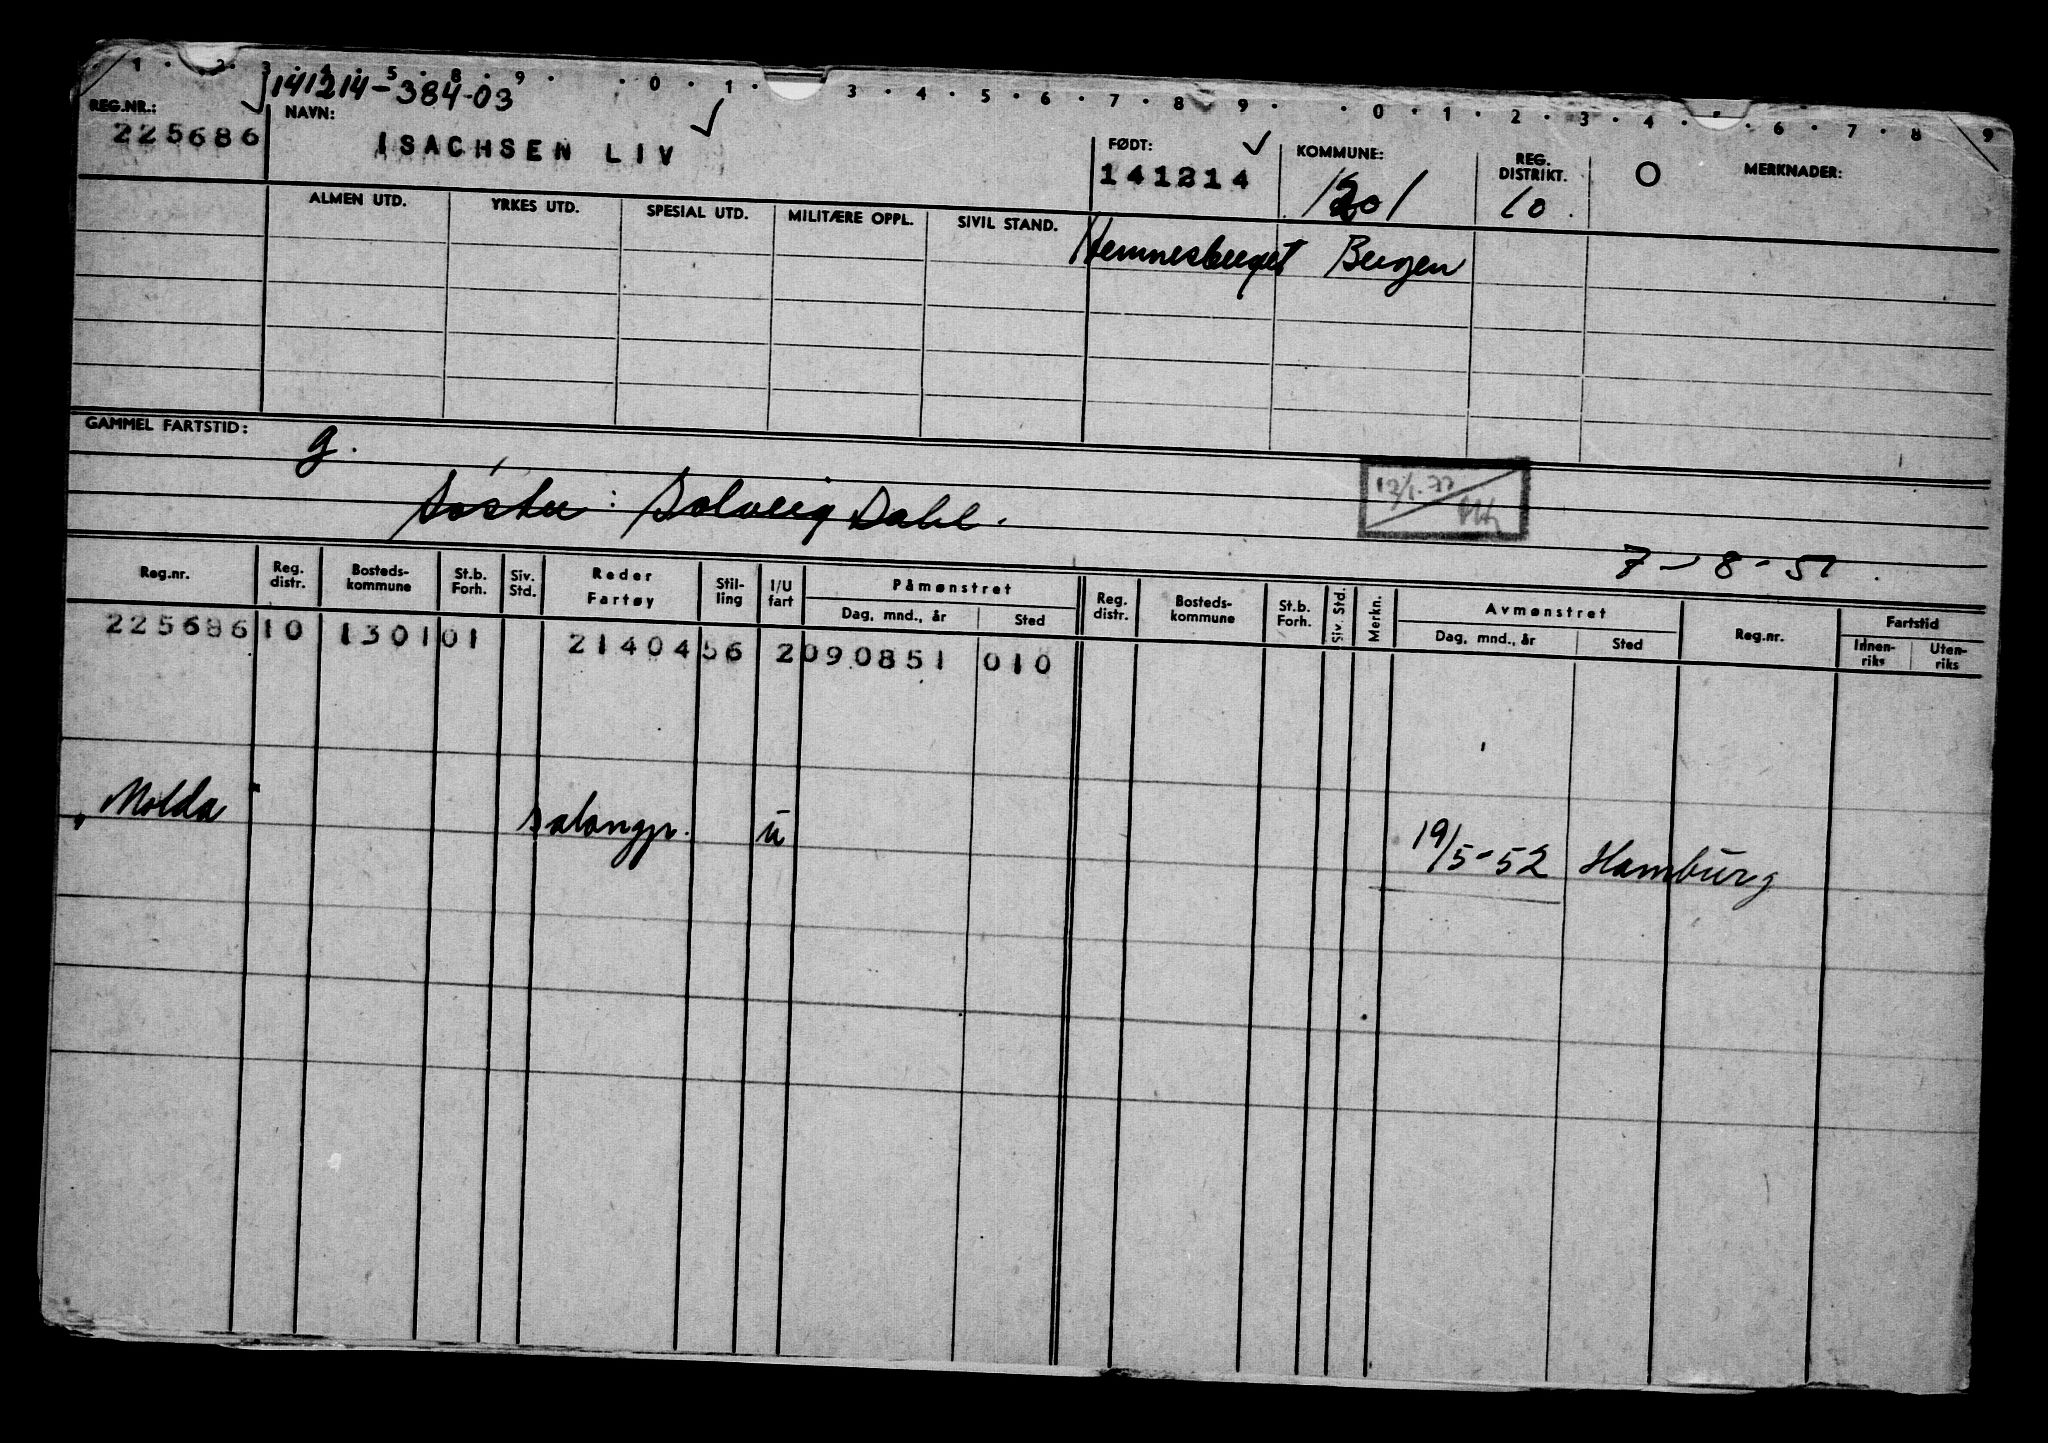 1 · 2 · 3 · 4 · 5 · 8 · 9 · · 0 · 1 · 3 · 4 · 5 · 6 · 7 · 8 · 9 · · 0 · 1 · 2 · 3 · 4 · · 6 · 7 · 8 · 9
141214-384-03
REG.NR.: NAVN: FØDT: KOMMUNE: REG. DISTRIKT. O MERKNADER:
225686 ISACHSEN LIV 141214 10
ALMEN UTD. YRKES UTD. SPESIAL UTD. MILITÆRE OPPL. SIVIL STAND. Hemnesberget Bergen
GAMMEL FARTSTID: g.
Søster: Solveig Dahl.
7-8-51.
Reg.nr. Reg. distr. Bosteds-kommune St.b. Forh. Siv. Std. Reder Fartøy Stil-ling I/U fart Påmønstret Dag, mnd., år Sted Reg. distr. Bosteds-kommune St.b. Forh. Siv. Std. Merkn. Avmønstret Dag, mnd., år Sted Reg.nr. Fartstid Innen-riks Uten-riks
225686 10 1301 01 21404 56 2 090851 010
"Molda" salongpr. u 19/5-52 Hamburg